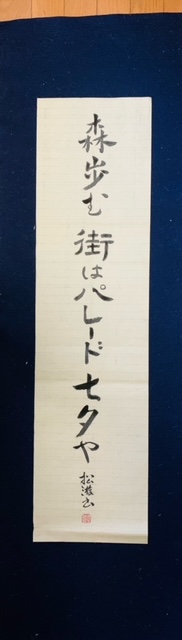 森歩む街はパレード七夕や
松游書